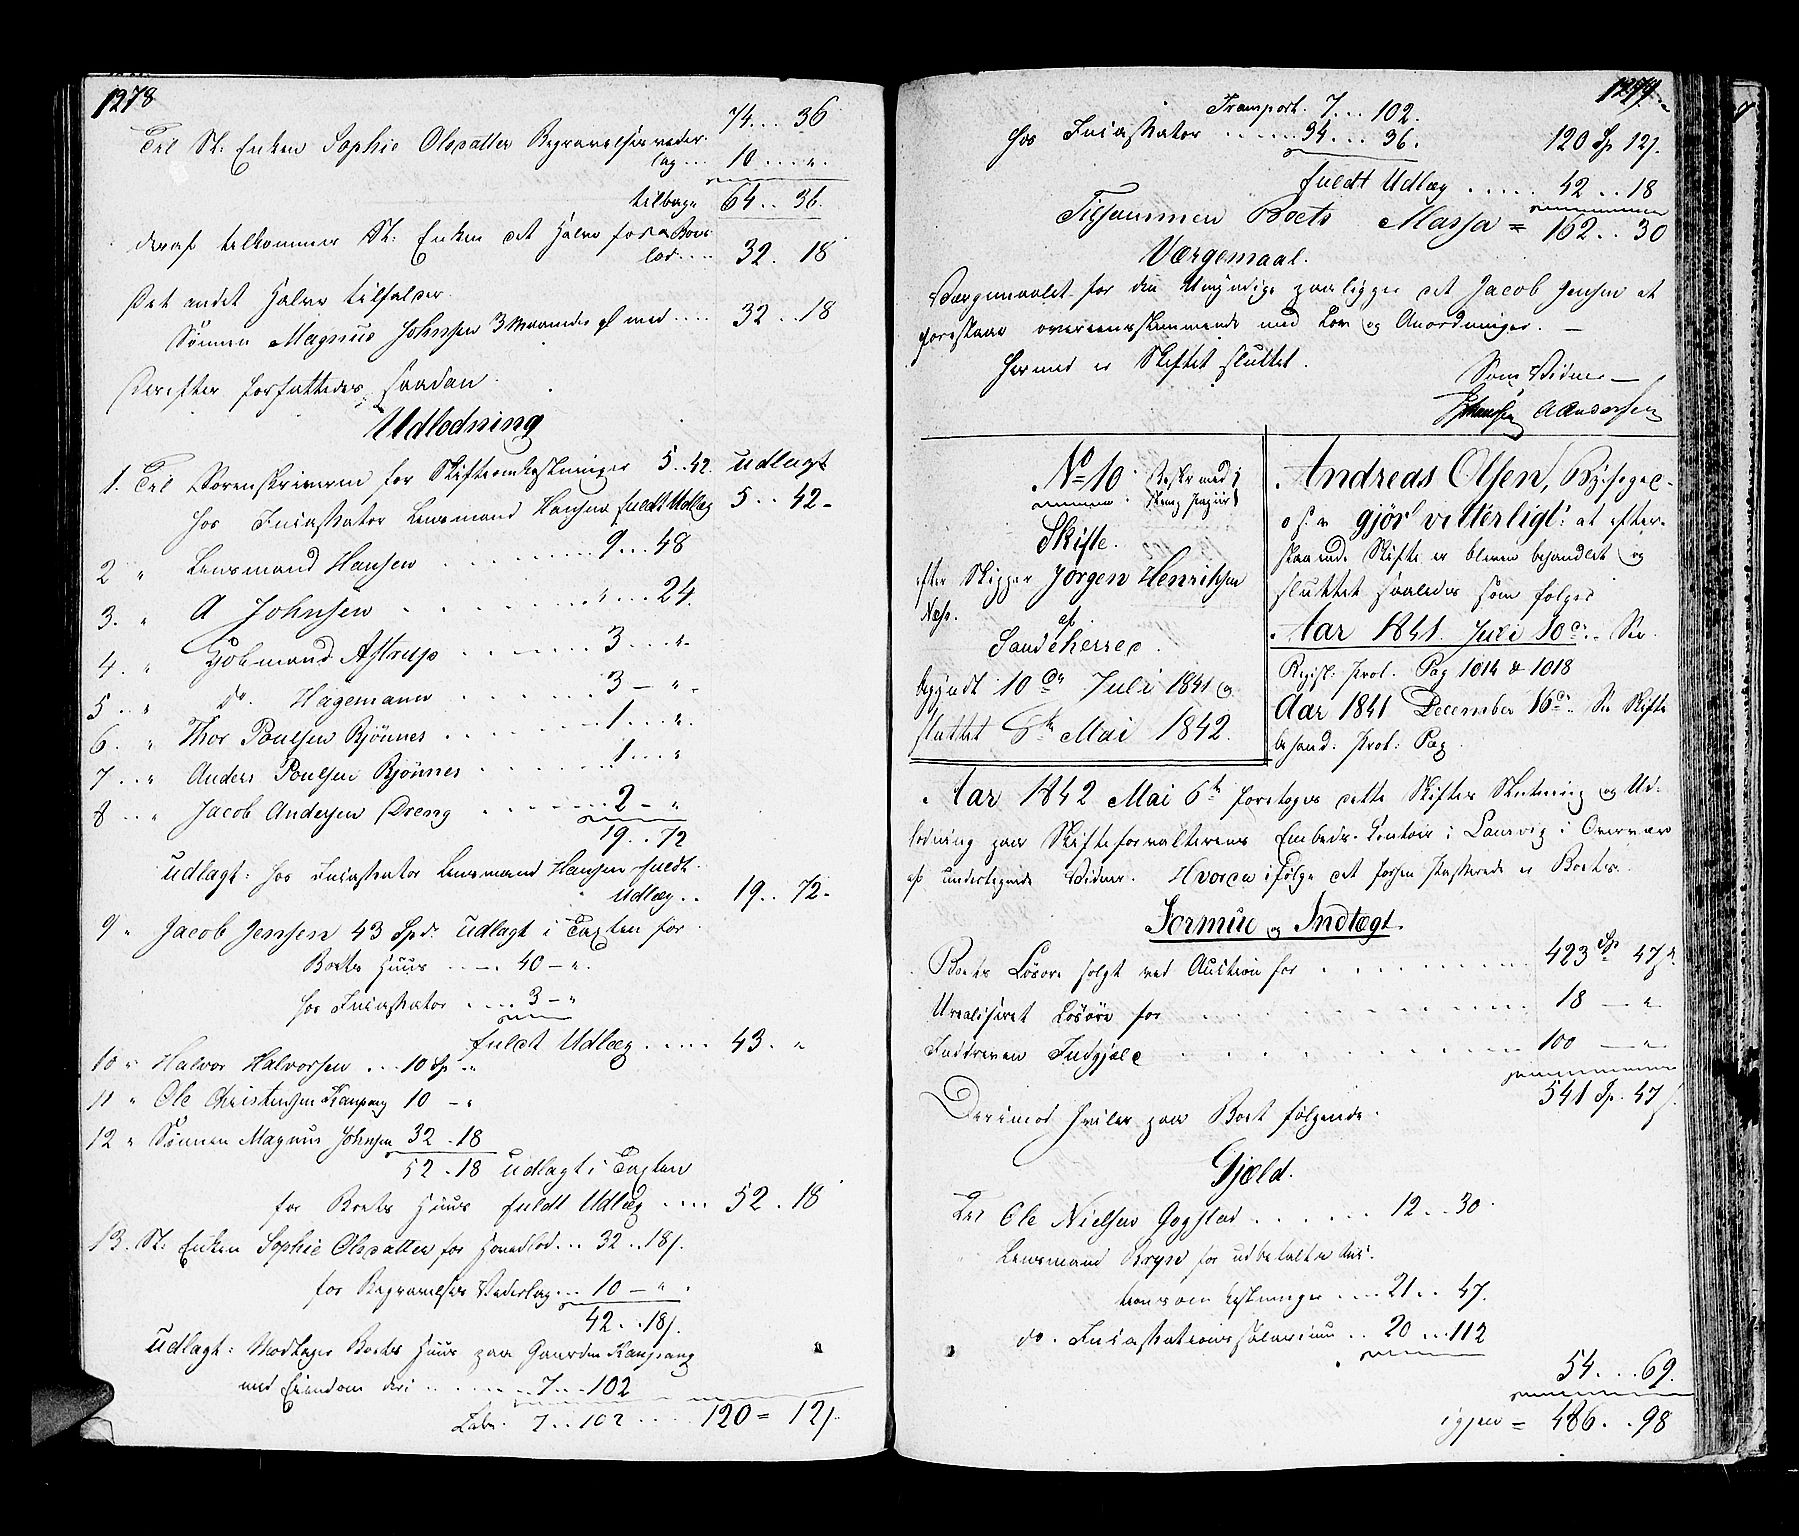 1278
74...36
Til St: Enken Sophie Olsdatter Begravelsesveder-
lag... 10...„
tilbage 64..36.
deraf tilkommer St: Enken det Halve for Boes
lod.... 32.18
Det andet Halve tilfalder
Sønnen Magnus Johnsen 3 Maaneder gl med.... 32..18
Derefter forfattedes saadan
Udlodning
1. Til Sorenskriveren for Skifteomkostninger 5..42. udlagt
hos Incassator Lensmand Hansen fuldt Udlæg 5..42-
2 „ Lensmand Hansen ...... 9...48
3. „ A Johnsen ...... „...24.
4. „ Kjøbmand Astrup ...... 3...„
5 „ do. Hagemann ...... 3-„
6. „ Thor Poulsen Bjønnes ...... 1...„
7.. „ Anders Poulsen Bjønnes ...... 1...„
8.. „ Jacob Andersen Dreng ...... 2-„
19..72
udlagt: hos Incassator Lensmand Hansen fuldt
Udlæg.. 19..72-
9 „ Jacob Jensen 43 Spd. udlagt i Taxten for
Boets Huus ..... 40-„.
hos Incassator ..... 3-„
fuldt Udlæg..... 43.„
10 „ Halvor Halvorsen ...10 Sp „
11 „ Ole Christensen Kaupang 10-„
12 „ Sønnen Magnus Johnsen 32.18
52.18 udlagt i Taxten
for Boets Huus fuldt Udlæg.... 52.18
13. St: Enken Sophie Olsdatter for Hovedlod... 32..18/.
for Begravelses Vederlag... 10-„
42..18/.
udlagt: Modtager Boets Huus paa Gaarden Kaupang
med Eiendom deri ....... 7...102
Labr. 7..102.... 120=12/.
1279.
Transport. 7...102.
hos Incassator ...... 34...36. 120 Sp 12/.
fuldt Udlæg..... 42..18
Tilsammen Boets Massa = 162..30
Værgemaal.
Værgemaalet for den Umyndige paaligger det Jacob Jensen at
forestaae overeensstemmende med Lov og Anordninger.-
Hermed er Skiftet sluttet.
Som Vidner-
Johansen A Andersen
No 10. Beskr med
Skifte.
efter Skipper Jörgen Henriksen
Næs. af
Sandeherred.
begyndt 10de Juli 1841 og
sluttet 6te Mai 1842.
Andreas Olsen, Byefoged
o s v gjör vitterligt: at efter-
staaende Skifte er bleven behandlet og
sluttet saaledes som følger
Aar 1841 Juli 10de. See
Regist. Prol. Pag 1014 & 1018
Aar 1841 December 16de. See Skifte
behand. Prol: Pag.
Aar 1842 Mai 6te foretoges dette Skiftes Slutning og Ud-
lodning paa Skifteforvalterens Embeds-Contoir i Laurvig i Overvær
af undertegnede Vidner. Hvorda ifølge det forhen passerede er Boets..
Formue og Indtægt.
Boets Løsøre solgt ved Auction for ...... 423 Sp 47/.
Urealiseret Løsøre for ...... 18-„
Inddreven Indgjæld ...... 100-„
541 Sp. 47/.
Derimod hviler paa Boet følgende.
Gjæld.
Til Ole Nielsen Gogstad ...... 12..30.
„ Lensmand Bryn for udbetalte Auc-
tionsomkostninger .... 21..47.
do. Incassationssalarium .. 20..112
54...69.
igjen = 486..98